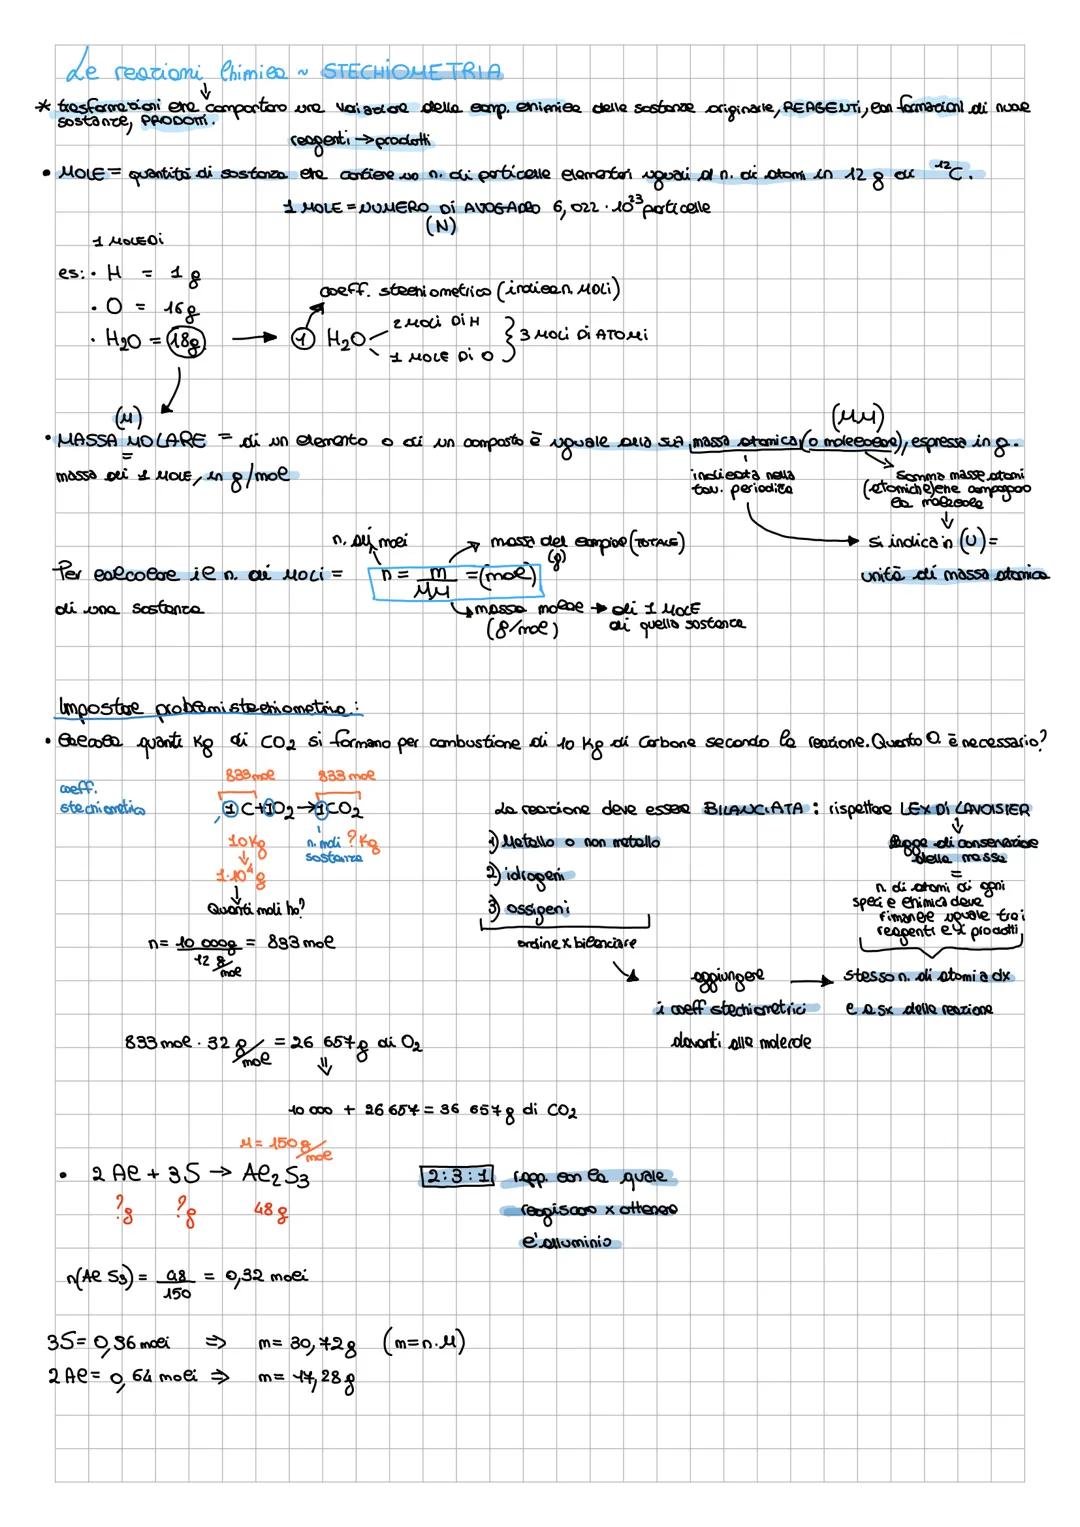 Le reazioni Chimica ~ STECHIOMETRIA
* trasformazioni che comportano una variazione della comp. chimica delle sostanze originarie, REAGENTI, con formazioni di nuove
sostanze, PRODOTTI.
reagenti → prodotti
• MOLE = quantità di sostanza che contiene un n. di particelle elementari uguali al n. di atomi in 12 g di ¹²C.
1 MOLE = NUMERO DI AVOGADRO 6,022 · 10²³ particelle
(N)
1 MOLE DI
es: · H = 1 g
· O = 16 g
· H₂O = 18g → 1 H₂O
coeff. stechiometrico (indica n. MOLI)
2 MOLI DI H
1 MOLE DI O
3 MOLI DI ATOMI
(M)
(MM)
• MASSA MOLARE = di un elemento o di un composto è uguale alla sua massa atomica (o molecolare), espressa in g.
=
massa di 1 MOLE, in g/mol
indicata nella
tav. periodica
somma masse atomi
(atomiche) che compongono
la molecola
si indica in (U) =
unità di massa atomica
n. di moli
massa del campione (TOTALE)
(g)
Per calcolare il n. di MOLI =
di una sostanza
n = m/MM = (mol)
massa molare → di 1 MOLE
(g/mol) di quella sostanza
Impostare problemi stechiometrici :
• Calcola quanti Kg di CO₂ si formano per combustione di 10 Kg di Carbone secondo la reazione. Quanto O₂ è necessario?
833 mol 833 mol
coeff.
stechiometrico
1C + 1O₂ → 1CO₂
10Kg
n. moli
sostanza
? Kg
1·10⁴ g
Quanti moli ho?
n = 10 000g / 12 g/mol = 833 mol
La reazione deve essere BILANCIATA : rispettare LEX DI LAVOISIER
1) Metallo o non metallo
2) idrogeni
3) ossigeni
ordine x bilanciare
legge di conservazione
della massa
=
n. di atomi di ogni
specie chimica deve
rimanere uguale tra i
reagenti e i prodotti
aggiungere
i coeff stechiometrici
davanti alle molecole
→ stesso n. di atomi a dx
e a sx della reazione
833 mol · 32 g/mol = 26 657g di O₂
10 000 + 26 657 = 36 657 g di CO₂
M = 150 g/mol
• 2 Al + 3S → Al₂S₃
?g ?g 48 g
2:3:1 rapp. con la quale
reagiscono x ottenere
l'alluminio
n(Al S₃) = 48/150 = 0,32 moli
3S = 0,96 moli ⇒ m = 30,72g (m=n·M)
2 Al = 0,64 moli ⇒ m = 17,28 g